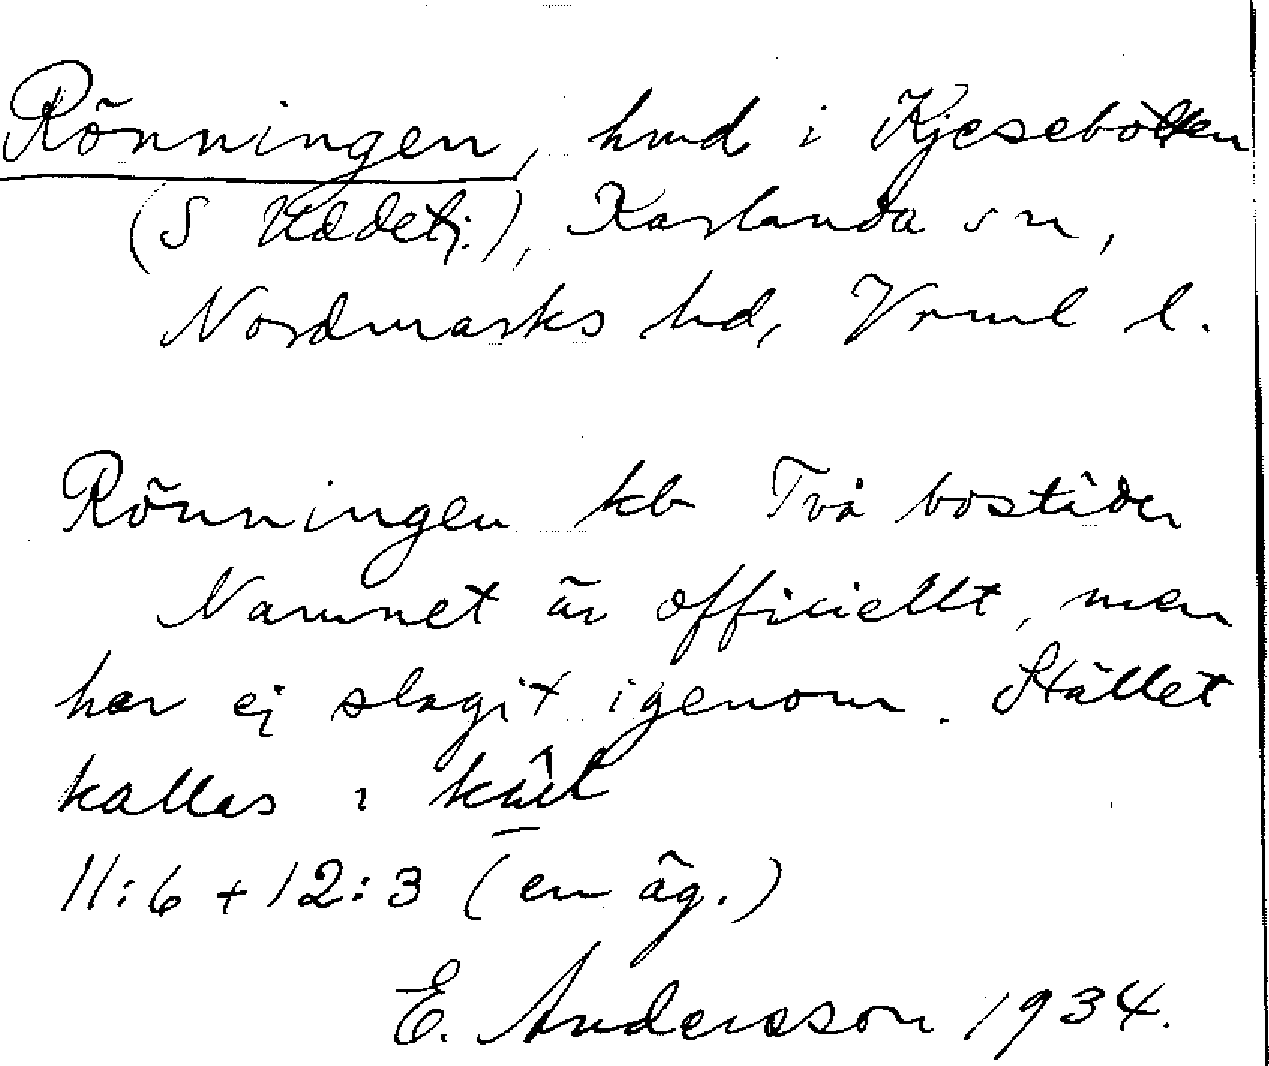 Rönningen, hmd i Kjesebotten
(S Uddetj.), Karlanda sn,
Nordmarks hd, Vrml l.
Rönningen kb Två bostäder
Namnet är officiellt, men
har ej slagit igenom. Stället
kallas i
11:6 + 12:3 (en äg.)
E. Andersson 1934.